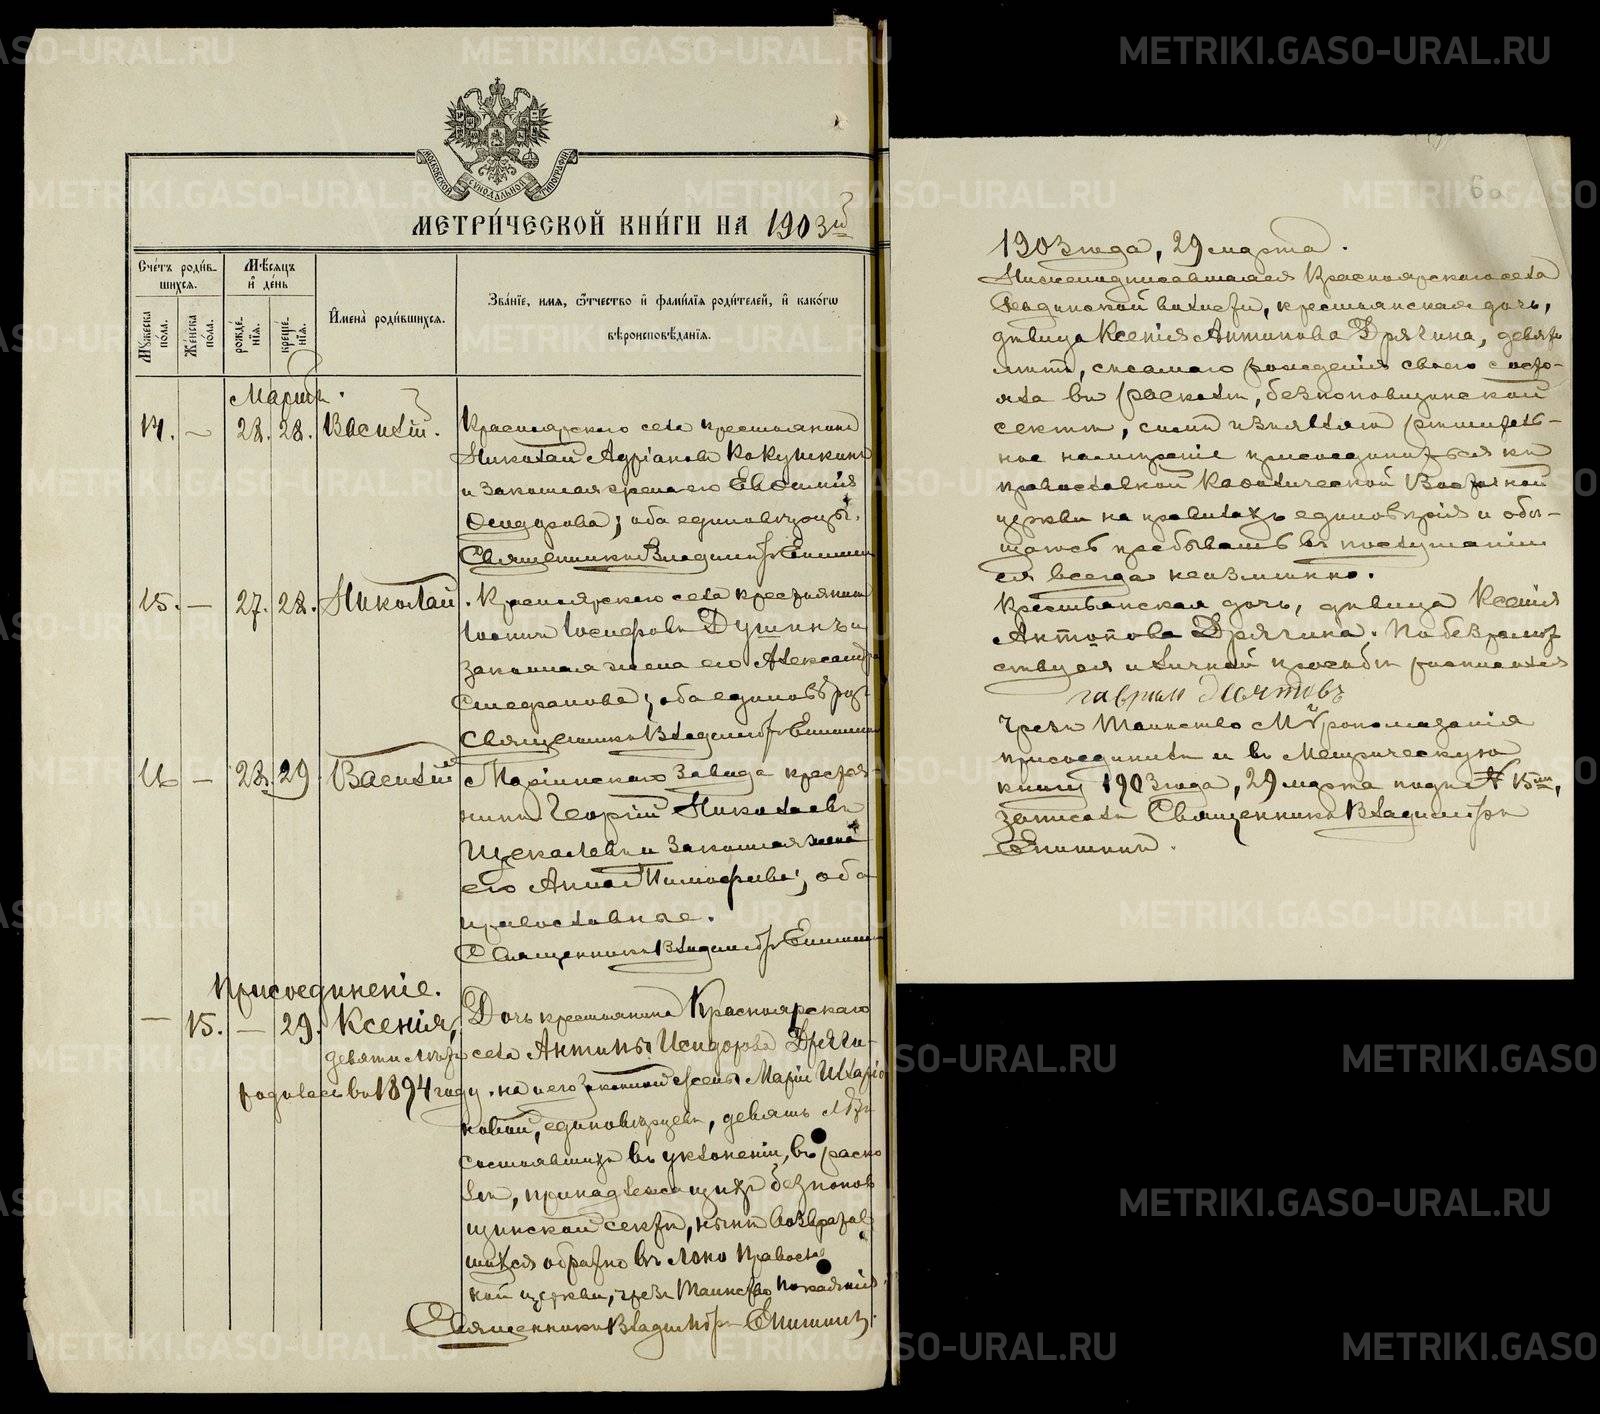 МЕТРИ́ЧЕСКОЙ КНИ́ГИ НА 1903й
МОСКОВСКОЙ СѴНОДАЛЬНОЙ ТИПОГРАФІИ
Сче́тъ роди́в-
шихся.
Мѣ́сяцъ
и҆ де́нь
Мꙋ́жеска
по́ла.
Же́нска
по́ла.
рожде́-
нїѧ.
креще́-
нїѧ.
И҆мена̀ роди́вшихся.
Зва́нїе, имя, ѻ҆́тчество и҆ фами́лїѧ роди́телей, и҆ како́гѡ
вѣроисповѣ́данїѧ.
Мартъ.
14. – 28. 28. Василій.
Красноярскаго села крестьянинъ
Николай Адріановъ Кокушкинъ
и законная жена его Евѳимія
Сидорова; оба единовѣрцы.
Священникъ Владиміръ Епишинъ
15. – 27. 28. Николай.
Красноярскаго села крестьянинъ
Іоаннъ Іосифовъ Душинъ и
законная жена его Александра
Стефанова; оба единовѣрц.
Священникъ Владиміръ Епишинъ
16 – 28. 29 Василій
Маріинскаго завода крестья-
нинъ Георгій Николаевъ
Щекалевъ и законная жена
его Анна Тимофѣева; оба
православные.
Священникъ Владиміръ Епишинъ
Присоединеніе.
– 15. – 29. Ксенія,
девяти лѣтъ
родилась въ 1894 году.
Дочь крестьянина Красноярскаго
села Антипы Исидорова Дрягина
и его законной жены Маріи
новой, единовѣрцевъ, девять лѣтъ
состоявшихъ въ уклоненіи, въ раско
лѣ, принадлежащихъ безпопов
щинской сектѣ, нынѣ возврати
шихся обратно въ лоно Правосла
ной церкви, чрезъ Таинство Покаянія.
Священникъ Владиміръ Епишинъ
60
1903 года, 29 марта.
Нижеподписавшаяся Красноярскаго села
волости, крестьянская дочь,
дѣвица Ксенія Антипова Дрягина, девяти
лѣтъ, съ самаго рожденія своего состо-
яла въ расколѣ, безпоповщинской
сектѣ, симъ изъявляю рѣшитель-
ное намѣреніе присоединиться къ
православной Каѳолической Восточной
церкви на правилахъ единовѣрія и обѣ-
щаюсь пребывать въ послушаніи
ея всегда неизмѣнно.
Крестьянская дочь, дѣвица Ксенія
Антипова Дрягина. По безграмот
ству ея и личной просьбѣ росписался
гаврил
Чрезъ Таинство Мѵропомазанія
присоединилъ и въ Метрическую
книгу 1903 года, 29 марта подъ № 15мъ,
записалъ Священникъ Владиміръ
Епишинъ.
METRIKI.GASO-URAL.RU